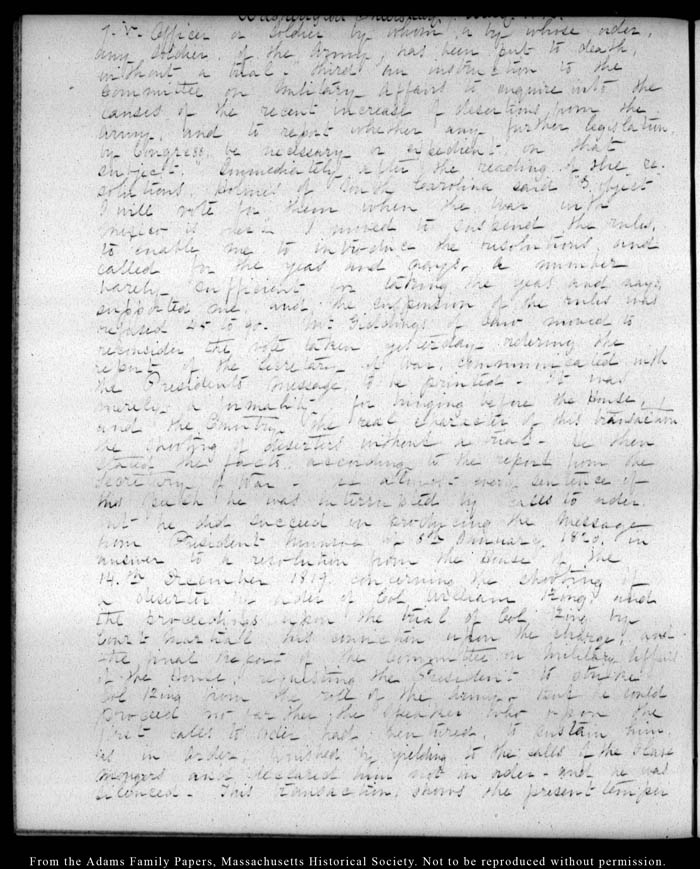 Washington Thursday
I. V. Officer or Soldier by whom, or by whose order,
any soldier, of the Army, has been put to death,
without a trial. third an instruction to the
Committee on Military Affairs to enquire into the
causes of the recent increase of desertions from the
army, and to report whether any further legislation,
by Congress, be necessary or expedient on that
subject. Immediately after the reading of the re-
solutions, Holmes of South Carolina said I object
I will vote for them when the War with
Mexico is over. I moved to suspend the rules,
to enable me to introduce the resolutions, and
called for the yeas and nays. A number
barely sufficient for taking the yeas and nays,
supported me, and the suspension of the rules was
refused 45 to 90. Mr Giddings of Ohio moved to
reconsider the vote taken yesterday ordering the
report of the Secretary of War, communicated with
the President's message, to be printed. It was
merely a formality for bringing before the House,
and the Country the real character of this transaction
the shooting of deserters without a trial. He then
stated the facts according to the report from the
Secretary of War. At almost every sentence of
this speech he was interrupted by calls to order
but he did succeed in producing the message
from President Monroe of January 1820, in
answer to a resolution from the House of the
14.th December 1819. concerning the shooting of
a deserter by order of Col. William King; and
the proceedings upon the trial of Col. King by
Court Martial his conviction upon the charge; and
the final report of the Committee on Military Affairs
of the House, requesting the President to strike
Col King from the roll of the Army. But he could
proceed no farther, the Speaker who upon the
first calls to order had ventured, to sustain him,
as in order, finished by yielding to the calls of the
mongers and declared him not in order and he was
silenced. This transaction, shows the present temper
From the Adams Family Papers, Massachusetts Historical Society. Not to be reproduced without permission.